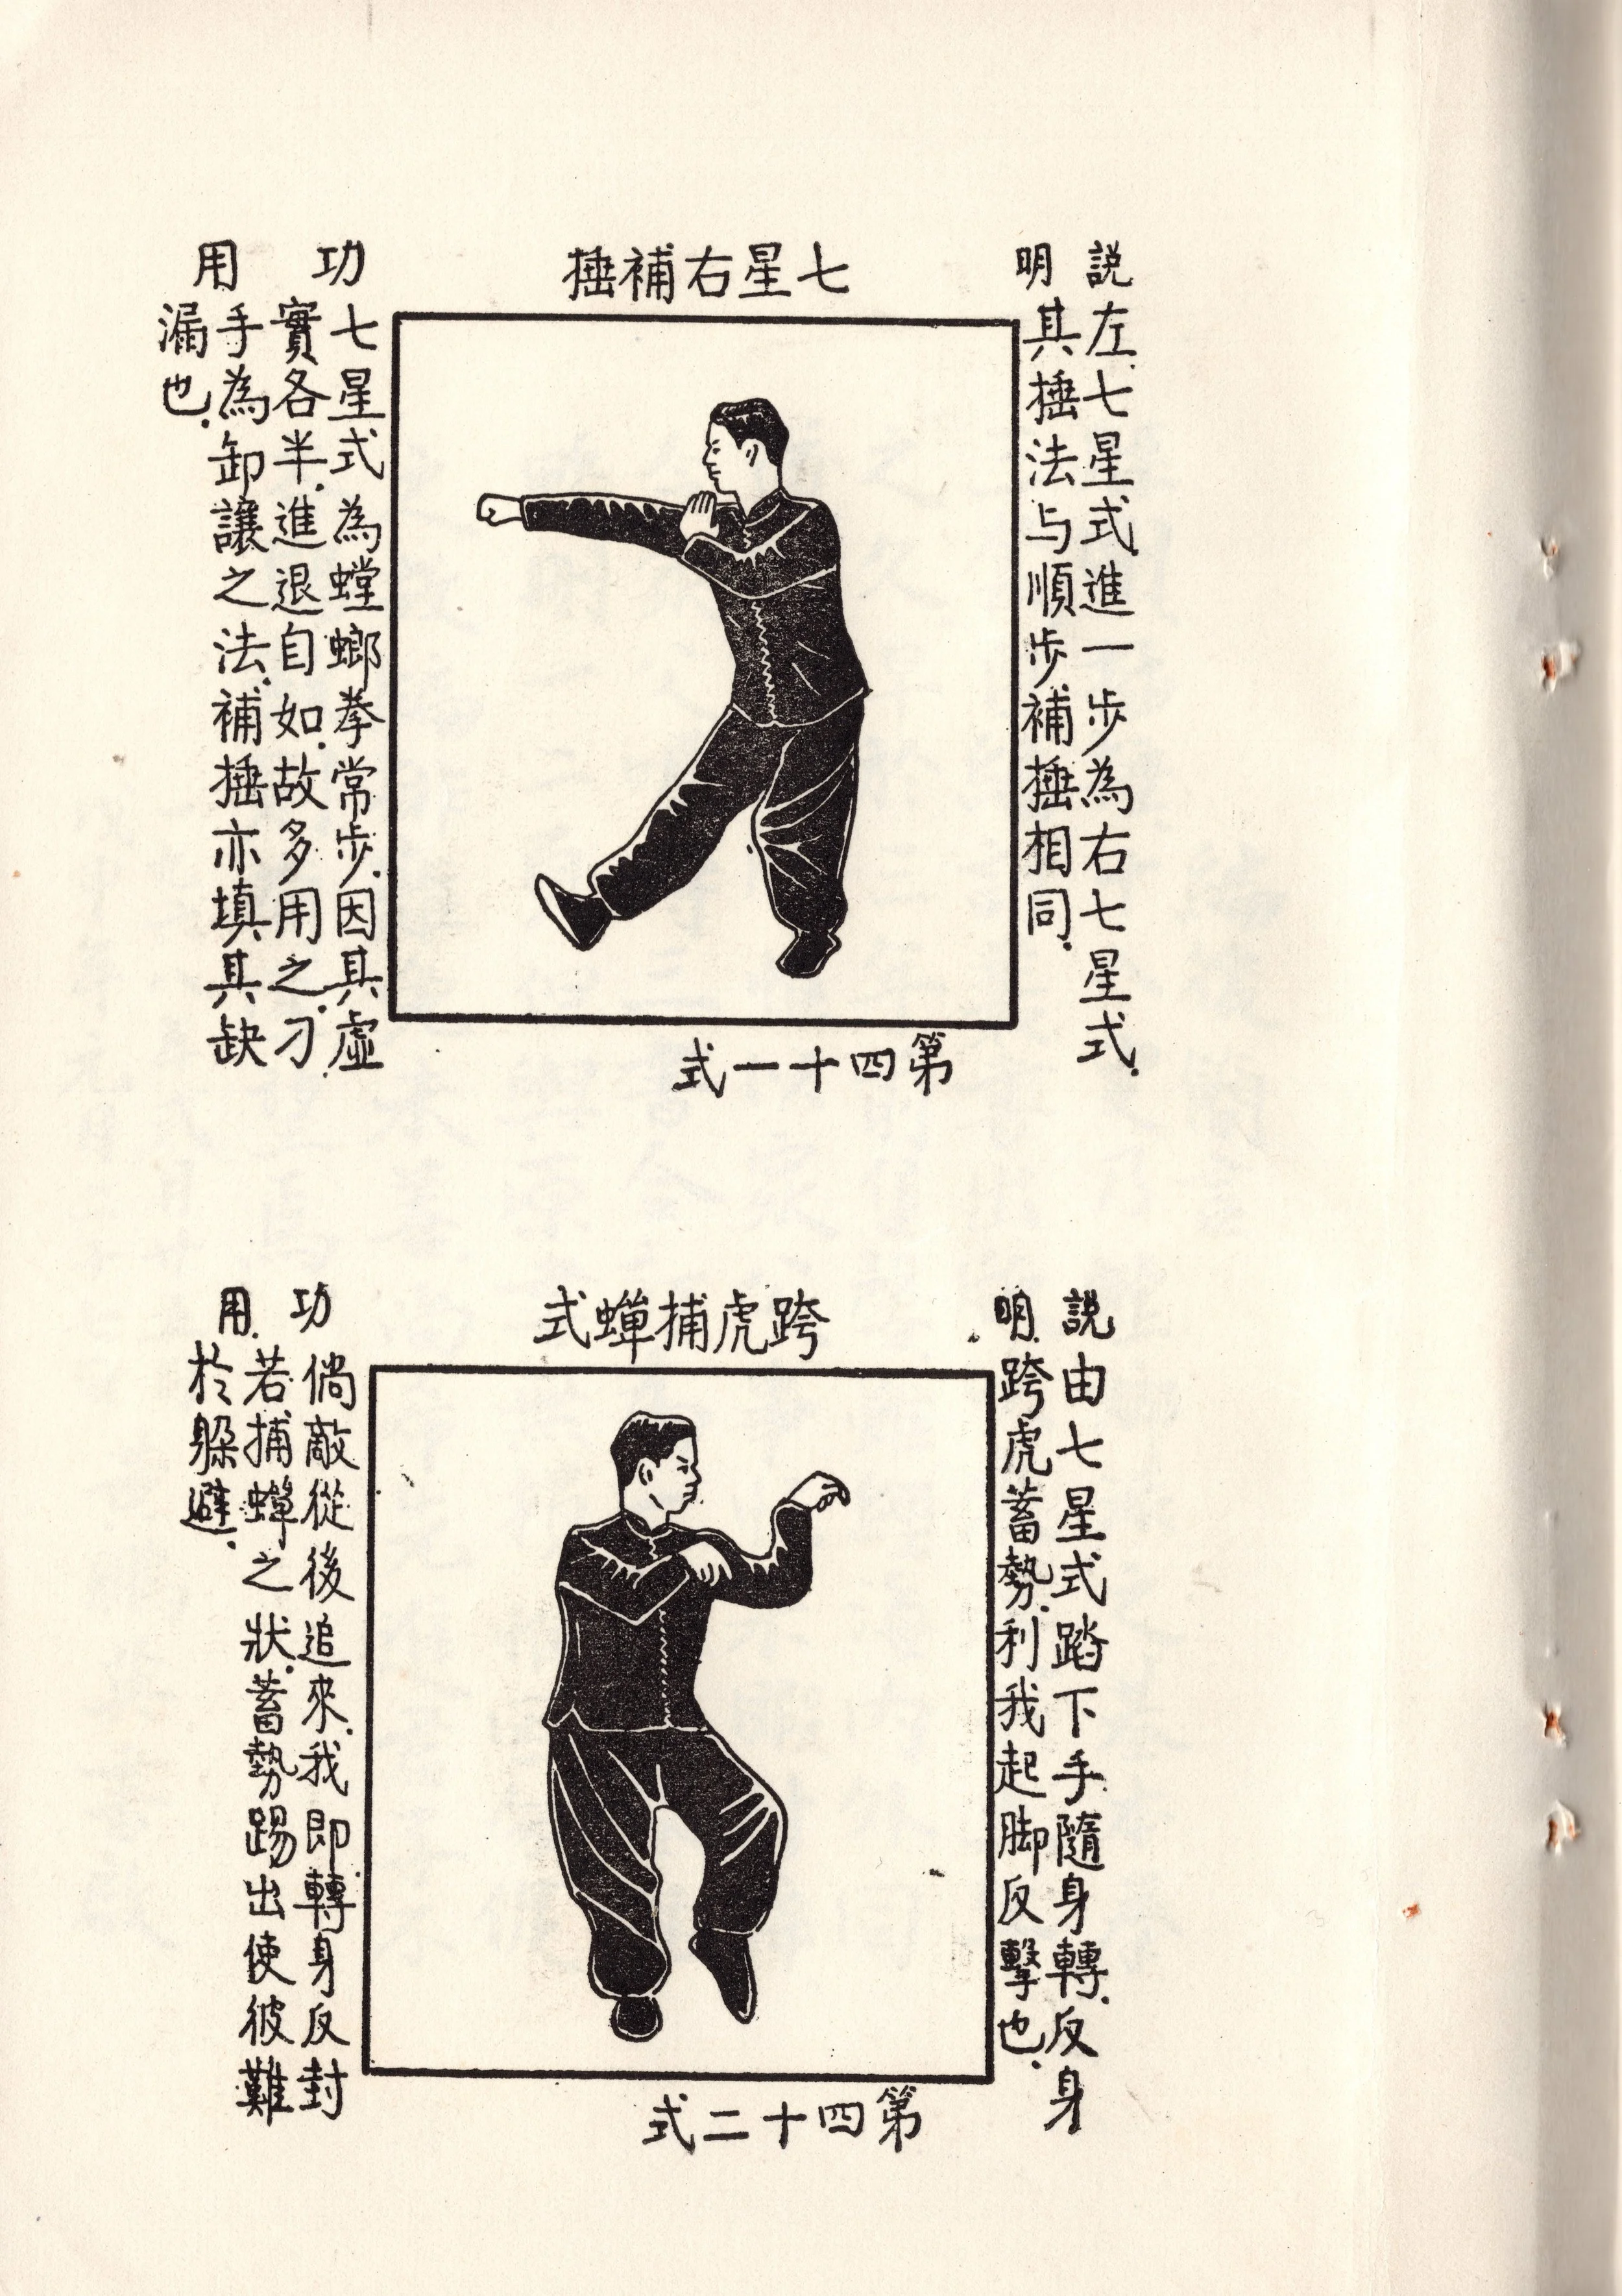 七星右補捶
說明
左七星式進一步為右七星式.
其捶法与順步補捶相同.
第四十一式
功用
七星式為螳螂拳常步.因其虛
實各半.進退自如.故多用之.刁
手為卸讓之法.補捶亦填其缺
漏也.
跨虎捕蟬式
說明
由七星式踏下手隨身轉.反身
跨虎蓄勢.利我起脚反擊也.
第四十二式
功用
倘敵從後追來.我即轉身反封
若捕蟬之狀.蓄勢踢出使彼難
於躲避.